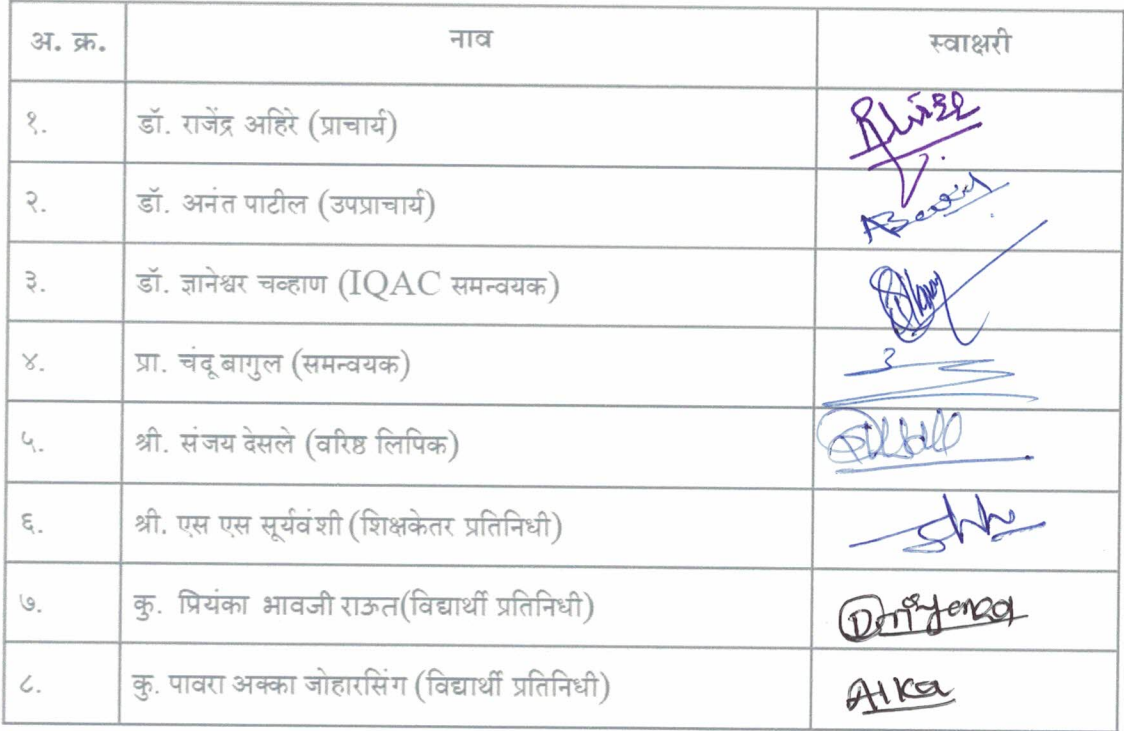 अ. क्र. नाव स्वाक्षरी
१. डॉ. राजेंद्र अहिरे (प्राचार्य)
२. डॉ. अनंत पाटील (उपप्राचार्य)
३. डॉ. ज्ञानेश्वर चव्हाण (IQAC समन्वयक)
४. प्रा. चंदू बागुल (समन्वयक)
५. श्री. संजय देसले (वरिष्ठ लिपिक)
६. श्री. एस एस सूर्यवंशी (शिक्षकेतर प्रतिनिधी)
७. कु. प्रियंका भावजी राऊत(विद्यार्थी प्रतिनिधी)
८. कु. पावरा अक्का जोहारसिंग (विद्यार्थी प्रतिनिधी)